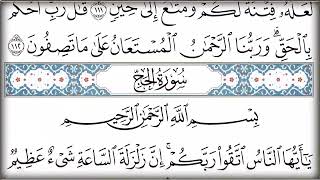 لَعَلَّهُۥ فِتْنَةٌ لَّكُمْ وَمَتَٰعٌ إِلَىٰ حِينٍ ١١١ قَٰلَ رَبِّ ٱحْكُم
بِٱلْحَقِّ ۗ وَرَبُّنَا ٱلرَّحْمَٰنُ ٱلْمُسْتَعَانُ عَلَىٰ مَا تَصِفُونَ ١١٢
سُورَةُ الحَجِّ
بِسْمِ ٱللَّهِ ٱلرَّحْمَٰنِ ٱلرَّحِيمِ
يَٰٓأَيُّهَا ٱلنَّاسُ ٱتَّقُوا۟ رَبَّكُمْ ۚ إِنَّ زَلْزَلَةَ ٱلسَّاعَةِ شَىْءٌ عَظِيمٌ